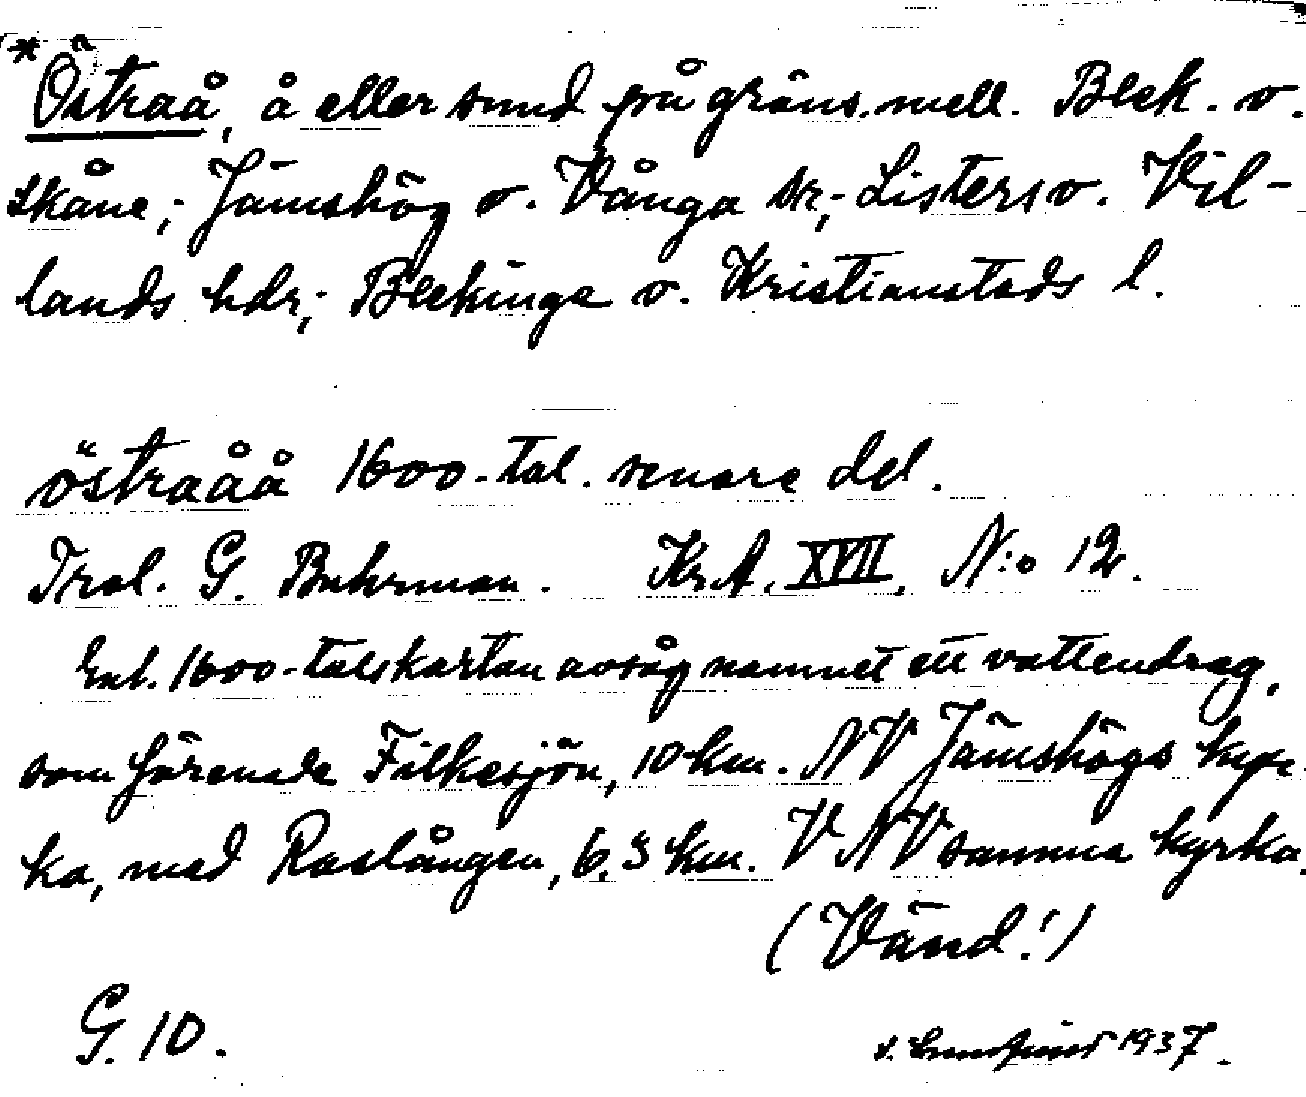 *Östraå, å eller sund på gräns. mell. Blek. o.
Skåne; Jämshög o. Vånga sr; Listers o. Vil-
lands hdr; Blekinge o. Kristianstads l.
östraåå 1600-tal. senare del.
Trol. G. Buhrman. Kr.A. XVII, N:o 12.
Enl. 1600-talskartan avsåg namnet ett vattendrag,
som förenade Filkesjön, 10 km. NV Jämshögs kyr-
ka, med Raslången, 6,5 km. V NV samma kyrka.
(Vänd!)
G. 10.
1937.